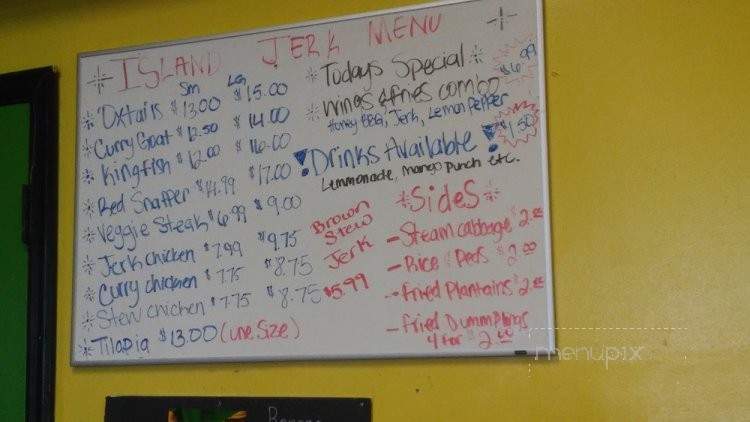 ISLAND JERK MENU
Sm LG
Oxtails $13.00 $15.00
Curry Goat $12.50 $14.00
Kingfish $12.00 $16.00
Red Snapper $14.99 $17.00
Veggie Steak $6.99 $9.00
Jerk chicken $7.99 $9.75
Curry chicken $7.75 $8.75
Stew chicken $7.75 $8.75
Tilapia $13.00 (one Size)
Brown
Stew
Jerk
$5.99
Todays Special
Wings & fries combo $6.99
Honey BBQ, Jerk, Lemon Pepper
Drinks Available! $1.50
Lemmonade, mango punch etc.
Sides
- Steam cabbage $2.00
- Rice / Peas $2.00
- Fried Plantains $2.00
- Fried Dummplings
4 for $2.00
menupix